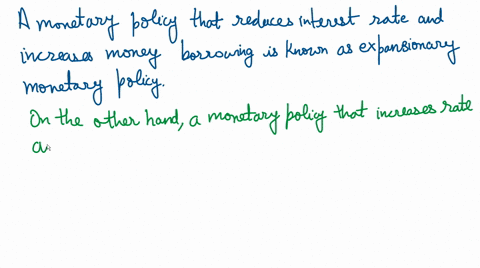 A monetary policy that reduces interest rate and
increases money borrowing is known as expansionary
monetary policy.
On the other hand, a monetary policy that increases rate
a